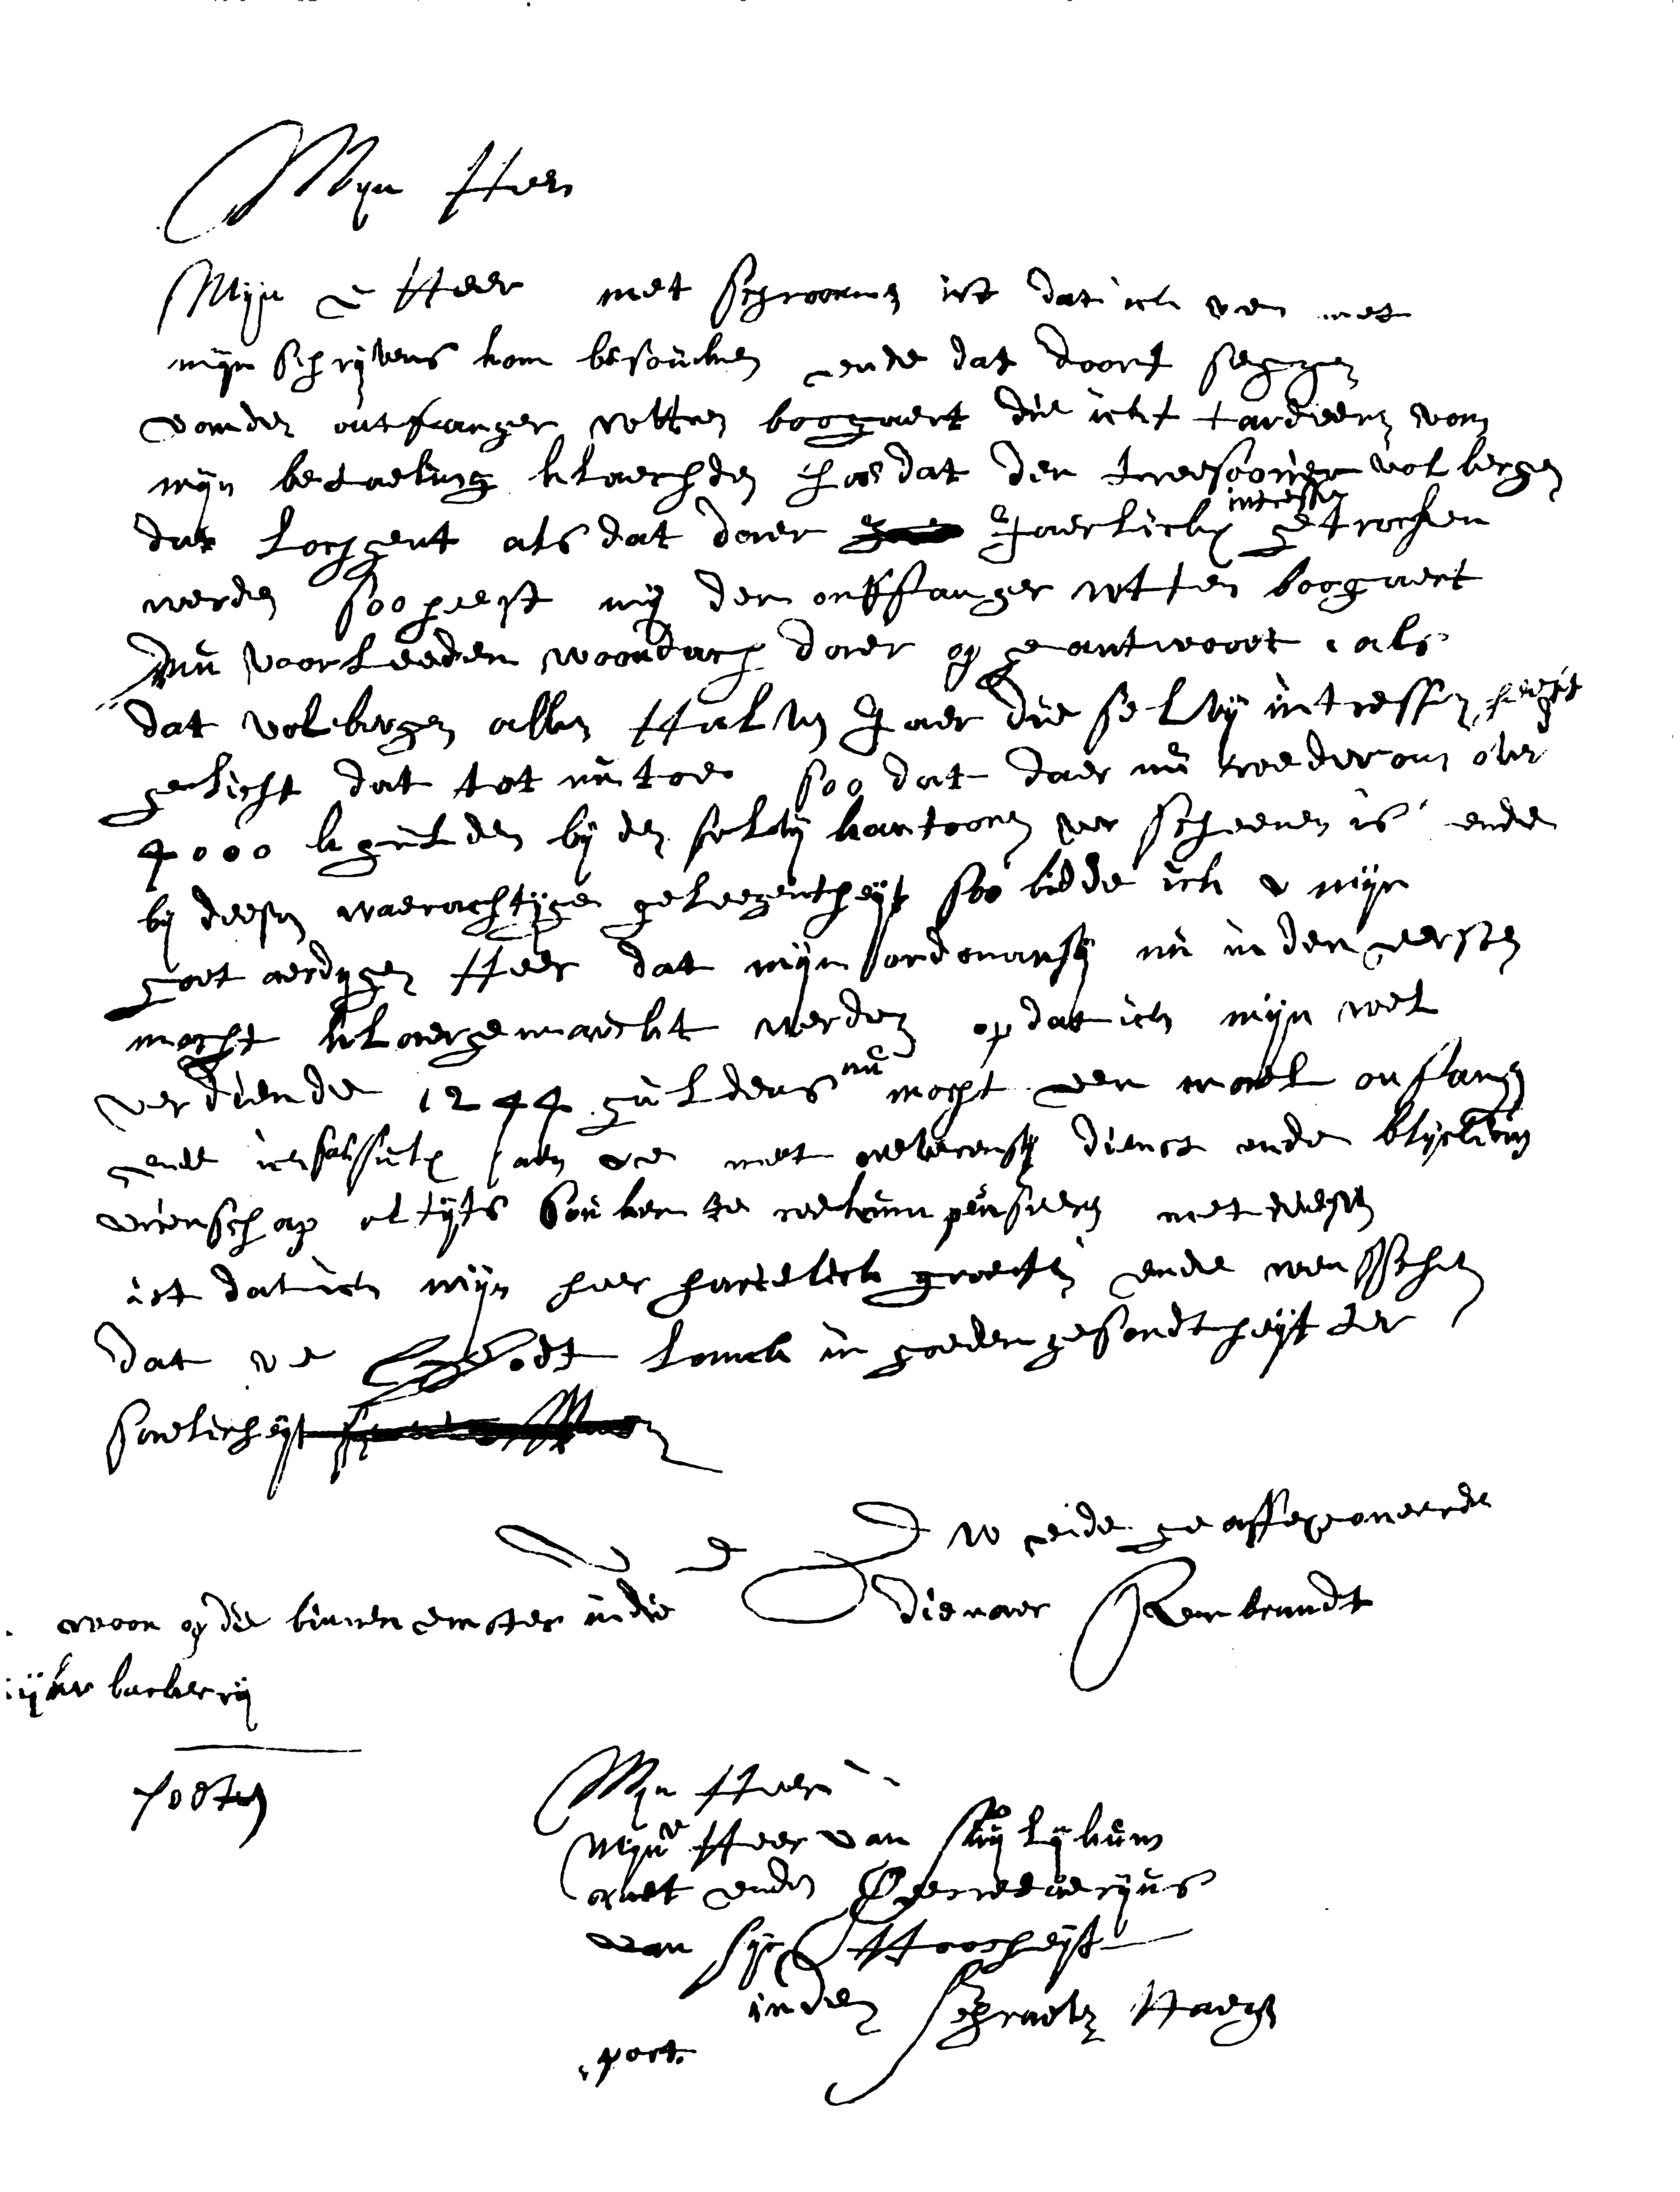 Myn Heer
Mijn E Heer met schroomen ist dat ick u en met
mijn schrijvens kom besoucken ende dat doort seggen
van den ontfanger wtten boogaert die ickt tardeeren van
mijn betaeling klaechden hoe dat den treesoorier volbergen
dat loogent als dat daer Jaerlickx interessen getrocken
werden soo heeft mij den ontffanger wtten boogaert
Nu voorleeden woondach daer op geantwoort als
dat volbergen allen Halven Jaer die selvij intressen heeft
gelicht dat tot nu toe soo dat daer nu wederom over
4000 k gulden bij den selvij kantooren verscheenen is ende
bij deesen waerachtijge geleegentheijt soo bidde ick u mijn
goet aerdijgen Heer dat mijn ordonansij nu in den eersten
mocht klaer gemaeckt werden op dat ick mijn wel
verdiende 1244 guldens nu mocht een mael onfangen
ende ick sal sulckx aen ue met reeverensij dienst ende blijcken van
vrienschap altijts soucken te reekumpenseeren met deesen
ist dat ick mijn heer hartelick groeten ende wensschen
dat ue Godt lanck in goeden gesondtheijt ter
saelicheijt
U E D w eide geaffexoneerde
dienaer Rembrandt
woon op die binnen emster in die
suijker backerij
Mijn Heer
Mijn E Heer van Suijlijkum
raet ende Seecreetaerijus
van sijn Hoocheijt
in den schraeven Haech
port.